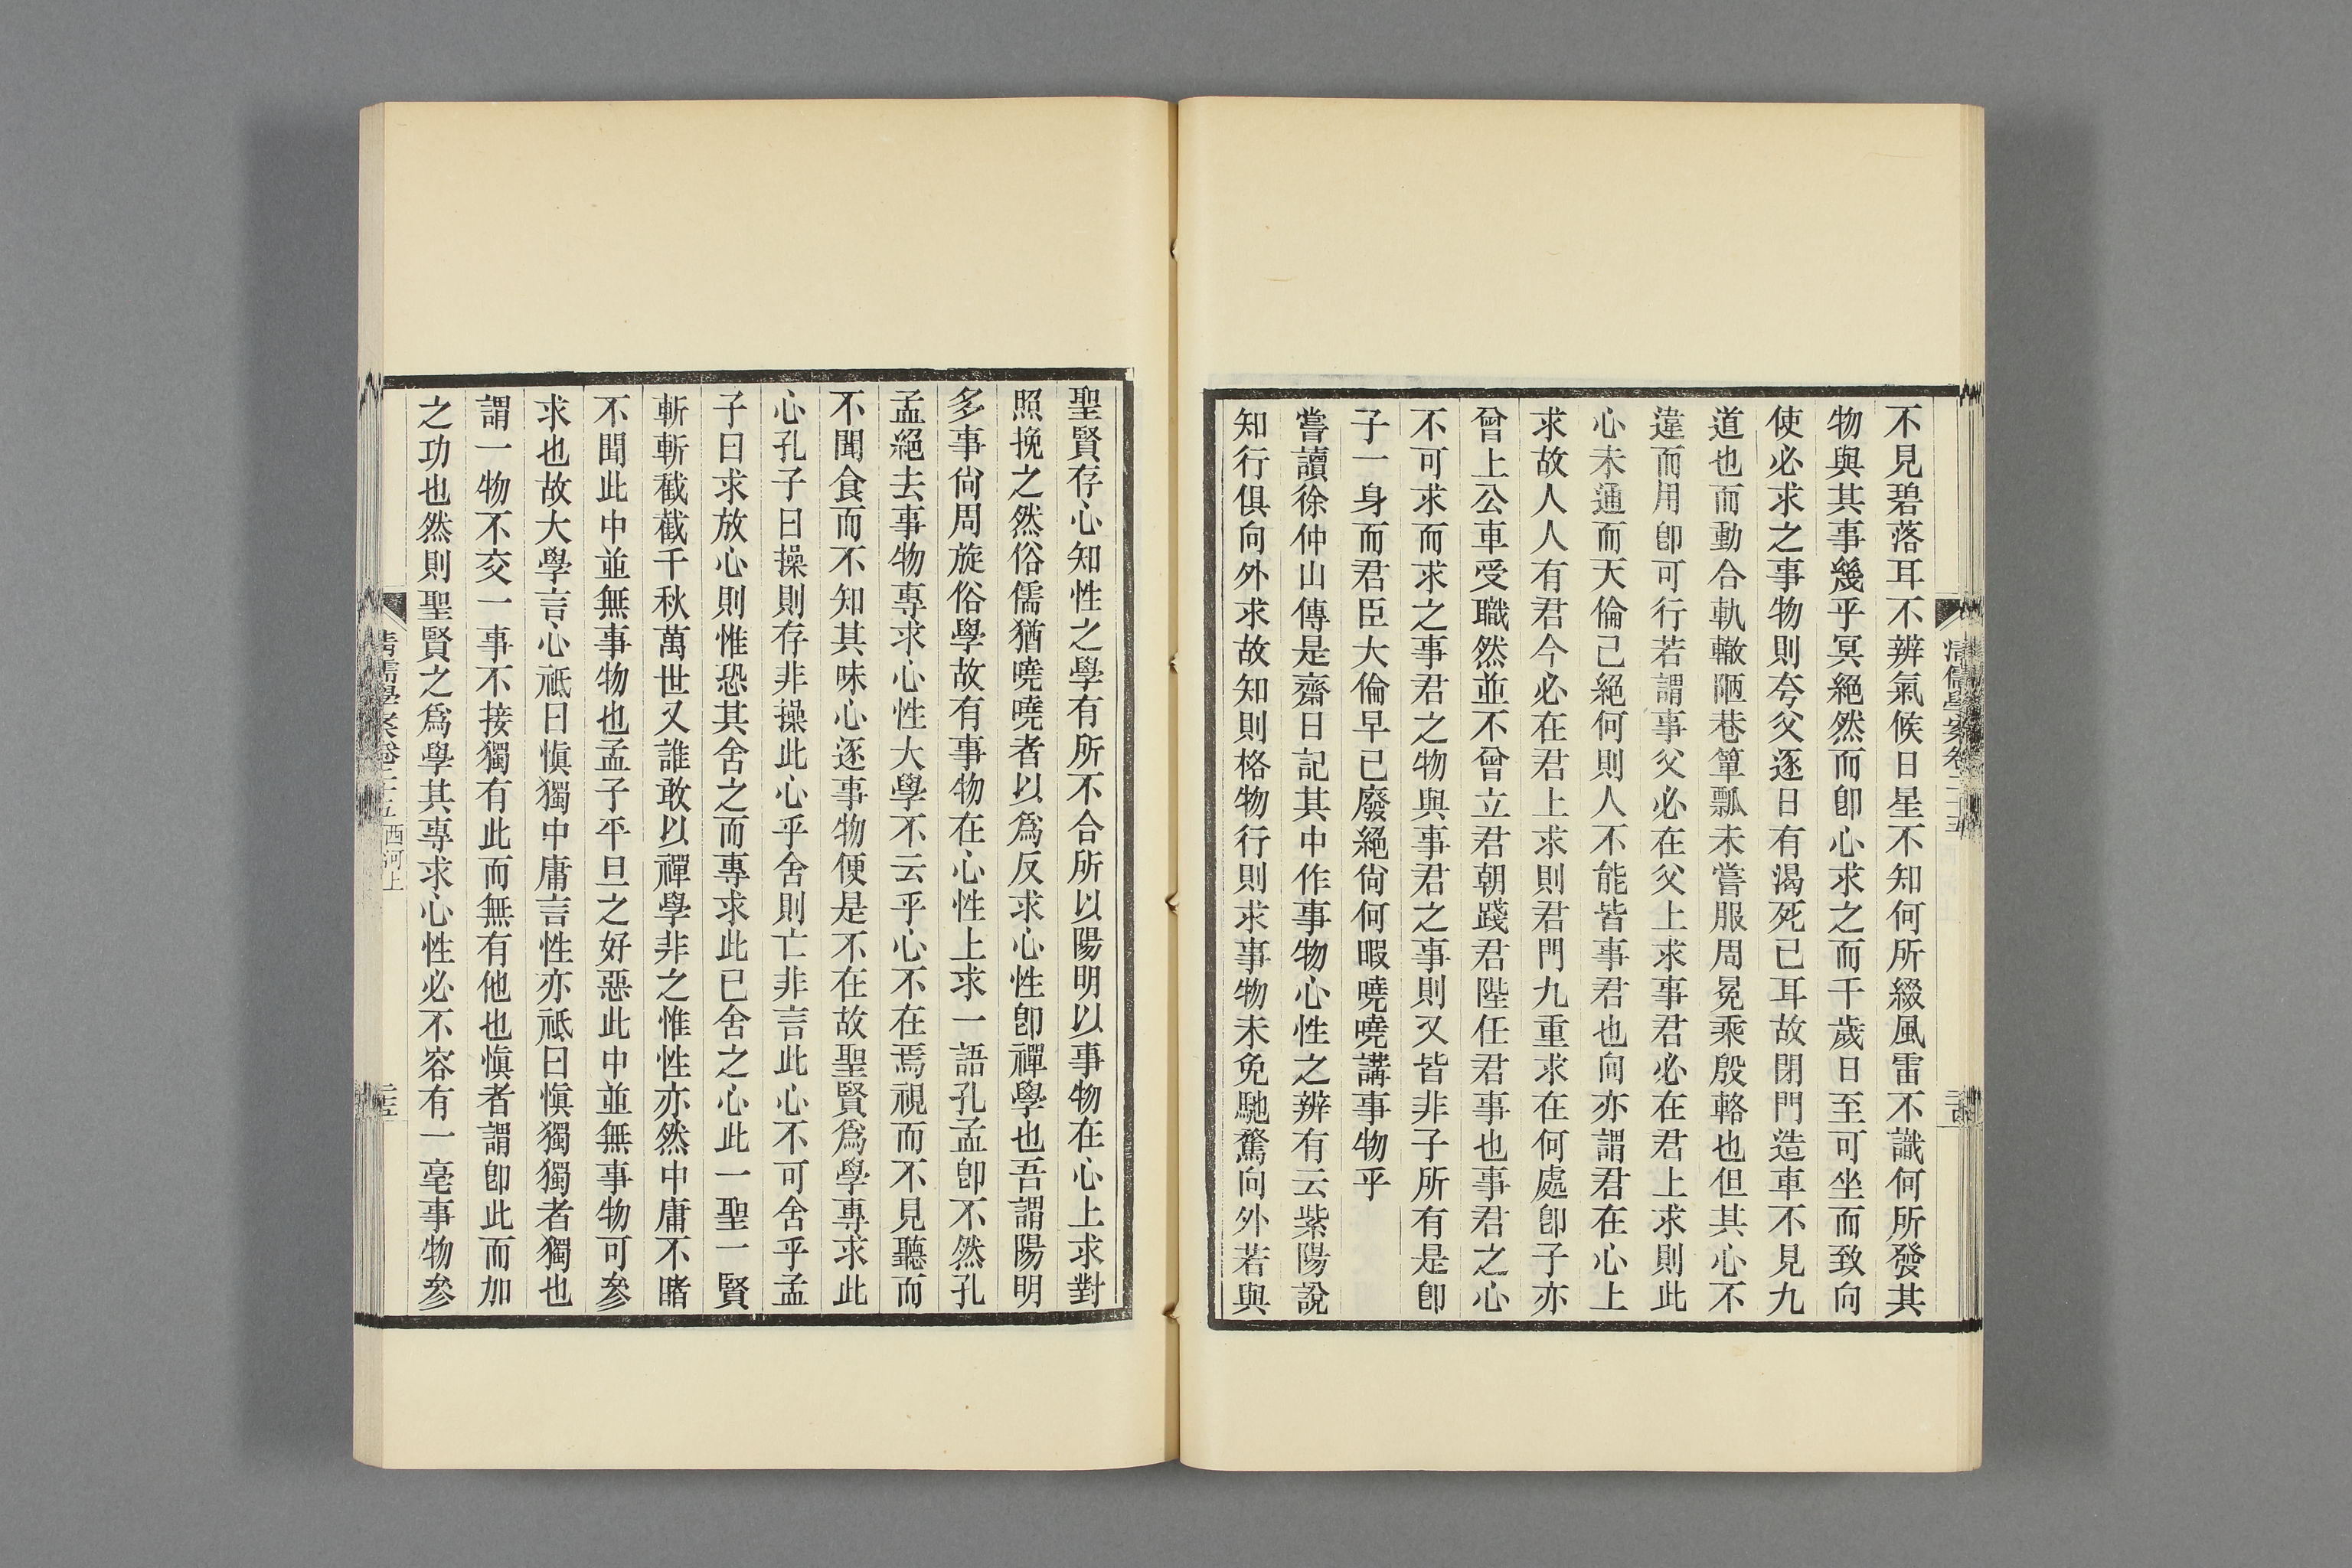 不見碧落耳不辨氣候日星不知何所綴風雷不識何所發其
物與其事幾乎冥絕然而卽心求之而千歲日至可坐而致向
使必求之事物則夸父逐日有渴死已耳故閉門造車不見九
道也而動合軌轍陋巷簞瓢未嘗服周冕乘殷輅也但其心不
違而用卽可行若謂事父必在父上求事君必在君上求則此
心未通而天倫已絕何則人不能皆事君也向亦謂君在心上
求故人人有君今必在君上求則君門九重求在何處卽子亦
曾上公車受職然並不曾立君朝踐君陛任君事也事君之心
不可求而求之事君之物與事君之事則又皆非子所有是卽
子一身而君臣大倫早已廢絕尙何暇曉曉講事物乎
嘗讀徐仲山傳是齋日記其中作事物心性之辨有云紫陽說
知行俱向外求故知則格物行則求事物未免馳騖向外若與
清儒學案卷二十五
聖賢存心知性之學有所不合所以陽明以事物在心上求對
照挽之然俗儒猶曉曉者以爲反求心性卽禪學也吾謂陽明
多事尙周旋俗學故有事物在心性上求一語孔孟卽不然孔
孟絕去事物專求心性大學不云乎心不在焉視而不見聽而
不聞食而不知其味心逐事物便是不在故聖賢爲學專求此
心孔子曰操則存非操此心乎舍則亡非言此心不可舍乎孟
子曰求放心則惟恐其舍之而專求此已舍之心此一聖一賢
斬斬截截千秋萬世又誰敢以禪學非之惟性亦然中庸不睹
不聞此中並無事物也孟子平旦之好惡此中並無事物可參
求也故大學言心祗曰愼獨中庸言性亦祗曰愼獨獨者獨也
謂一物不交一事不接獨有此而無有他也愼者謂卽此而加
之功也然則聖賢之爲學其專求心性必不容有一毫事物參
清儒學案卷二十五 西河上